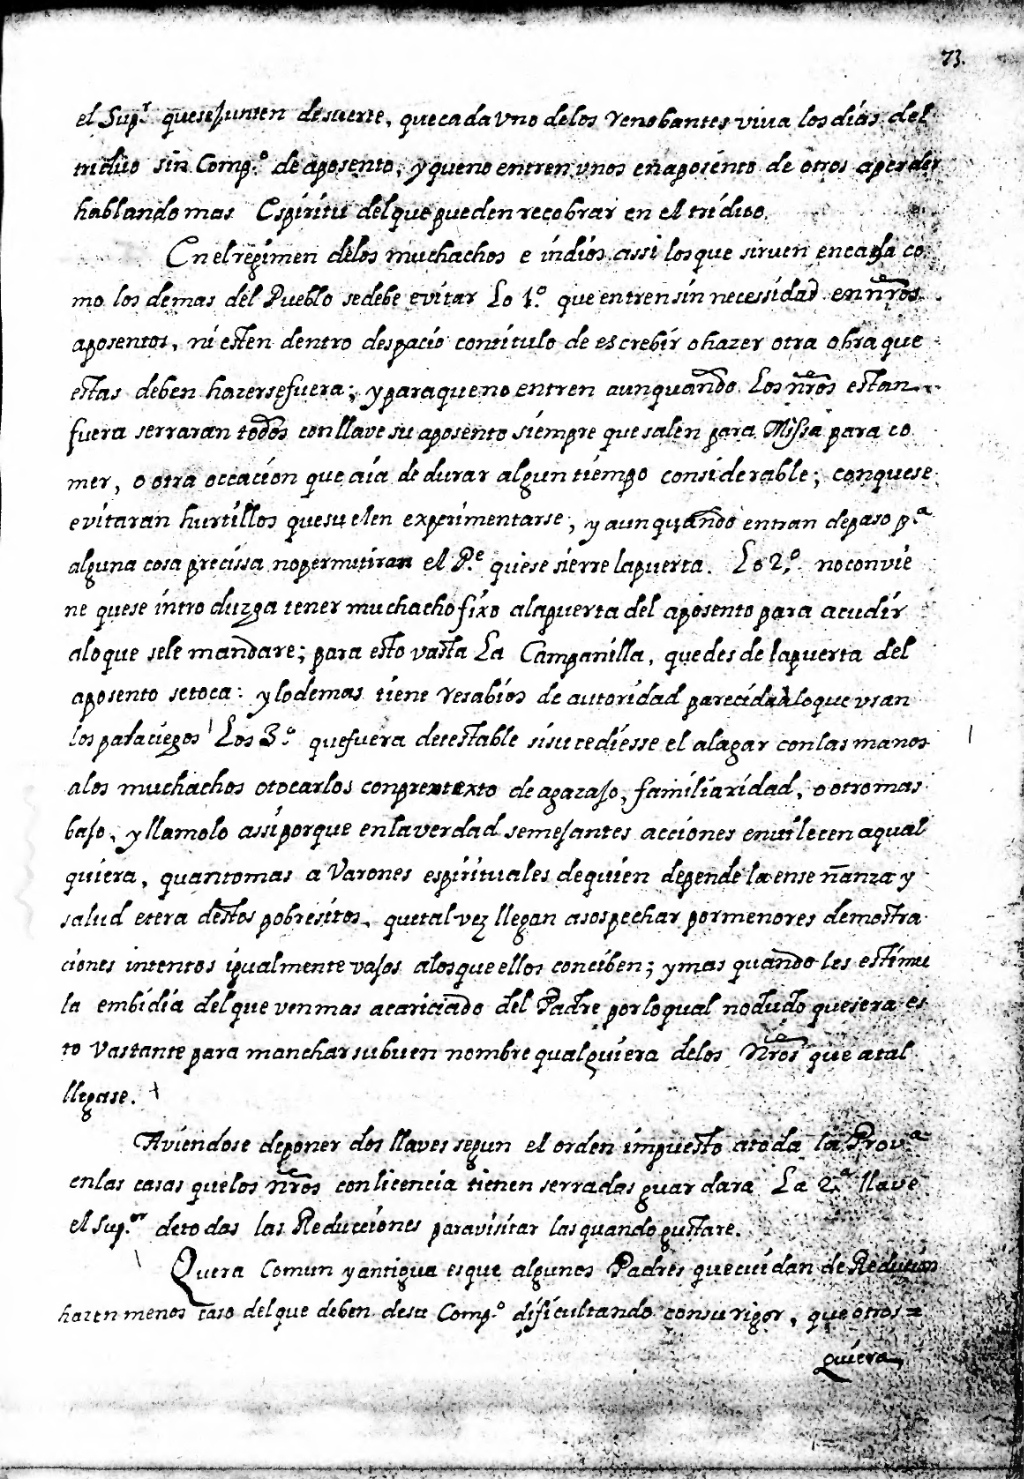 73.
el Sup.r quese junten desuerte, quecada vno delos renobantes viva los días del
triduo sin Comp.o de aposento, y queno entren vnos en aposento de otros aperder
hablando mas Espiritu delque pueden recobrar en el triduo.
En el regimen delos muchachos e indios assi losque sirven encasa co
mo los demas del Pueblo sedebe evitar Lo 1.o que entren sin necessidad en nr̃os
aposentos, ni esten dentro despacio contitulo de escrebir ohazer otra obra que
estas deben hazersefuera; y paraqueno entren aunquando Los nr̃os estan
fuera serraran todos conllave su aposento siempre que salen para Missa para co
mer, o otra occacion que aia de durar algun tiempo considerable; conquese
evitaran hurtillos quesuelen experimentarse; y aun quando entran depaso p.a
alguna cosa precissa nopermitiran el P.e quese sierre lapuerta. Lo 2.o noconvie
ne quese introduzga tener muchacho fixo alapuerta del aposento para acudir
aloque sele mandare; para esto vasta La Campanilla, quedesde lapuerta del
aposento setoca: y lodemas tiene resabios de autoridad parecida aloque vsan
los palaciegos Los 3.o quefuera detestable sisucediesse el alagar conlas manos
alos muchachos otocarlos conpretexto de agazajo, familiaridad, o otro mas
bajo, y llamolo assi porque enlaverdad semejantes acciones envilecen aqual
quiera, quantomas a Varones espirituales dequien depende la enseñanza y
salud eterã destos pobresitos, quetal vez llegan asospechar por menores demostra
ciones intentos igualmente vajos alosque ellos conciben; y mas quando les estimu
la embidia delque ven mas acariciado del Padre por loqual nodudo quesera es
to vastante para manchar subuen nombre qualquiera delos Nr̃os que atal
llegase.
Aviendose deponer dos llaves segun el orden impuesto atoda la Prov.a
enlas casas quelos nr̃os conlicencia tienen serradas guardara La 2.a llave
el Sup.or detodas las Reducciones paravisitar lasquando gustare.
Quexa Comun y antigua esque algunos Padres quecuidan de Reduccion
hazen menos caso delque deben desu Comp.o dificultando consu rigor, que otros =
quiera,